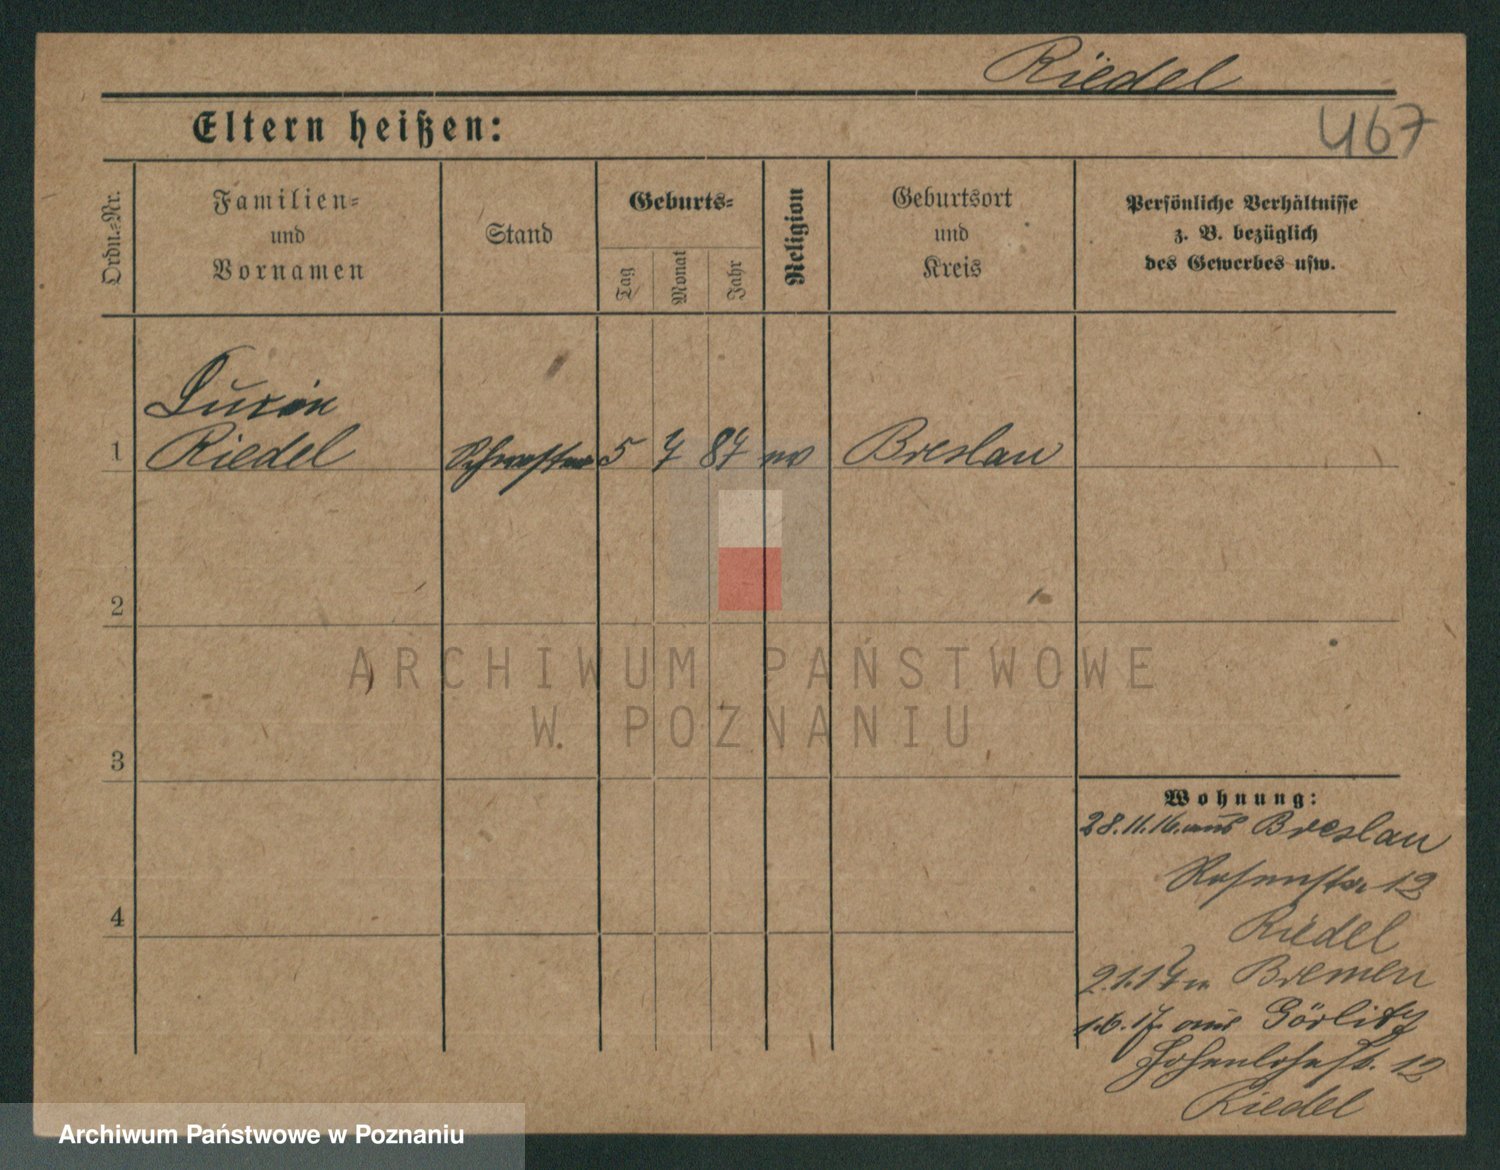 Riedel
467
Eltern heißen:
Ordn.-Nr.
Familien-
und
Vornamen
Stand
Geburts-
Tag
Monat
Jahr
Religion
Geburtsort
und
Kreis
Persönliche Verhältnisse
z. B. bezüglich
des Gewerbes usw.
1 Riedel Schwester 5 7 87 ev Breslau
2
3
4
ARCHIWUM PAŃSTWOWE
W POZNANIU
Wohnung:
28.11.16. aus Breslau
Rosenstr 12
Riedel
2.1.17 n Bremen
1.6.17. aus Görlitz
Hohenlohestr. 12
Riedel
Archiwum Państwowe w Poznaniu